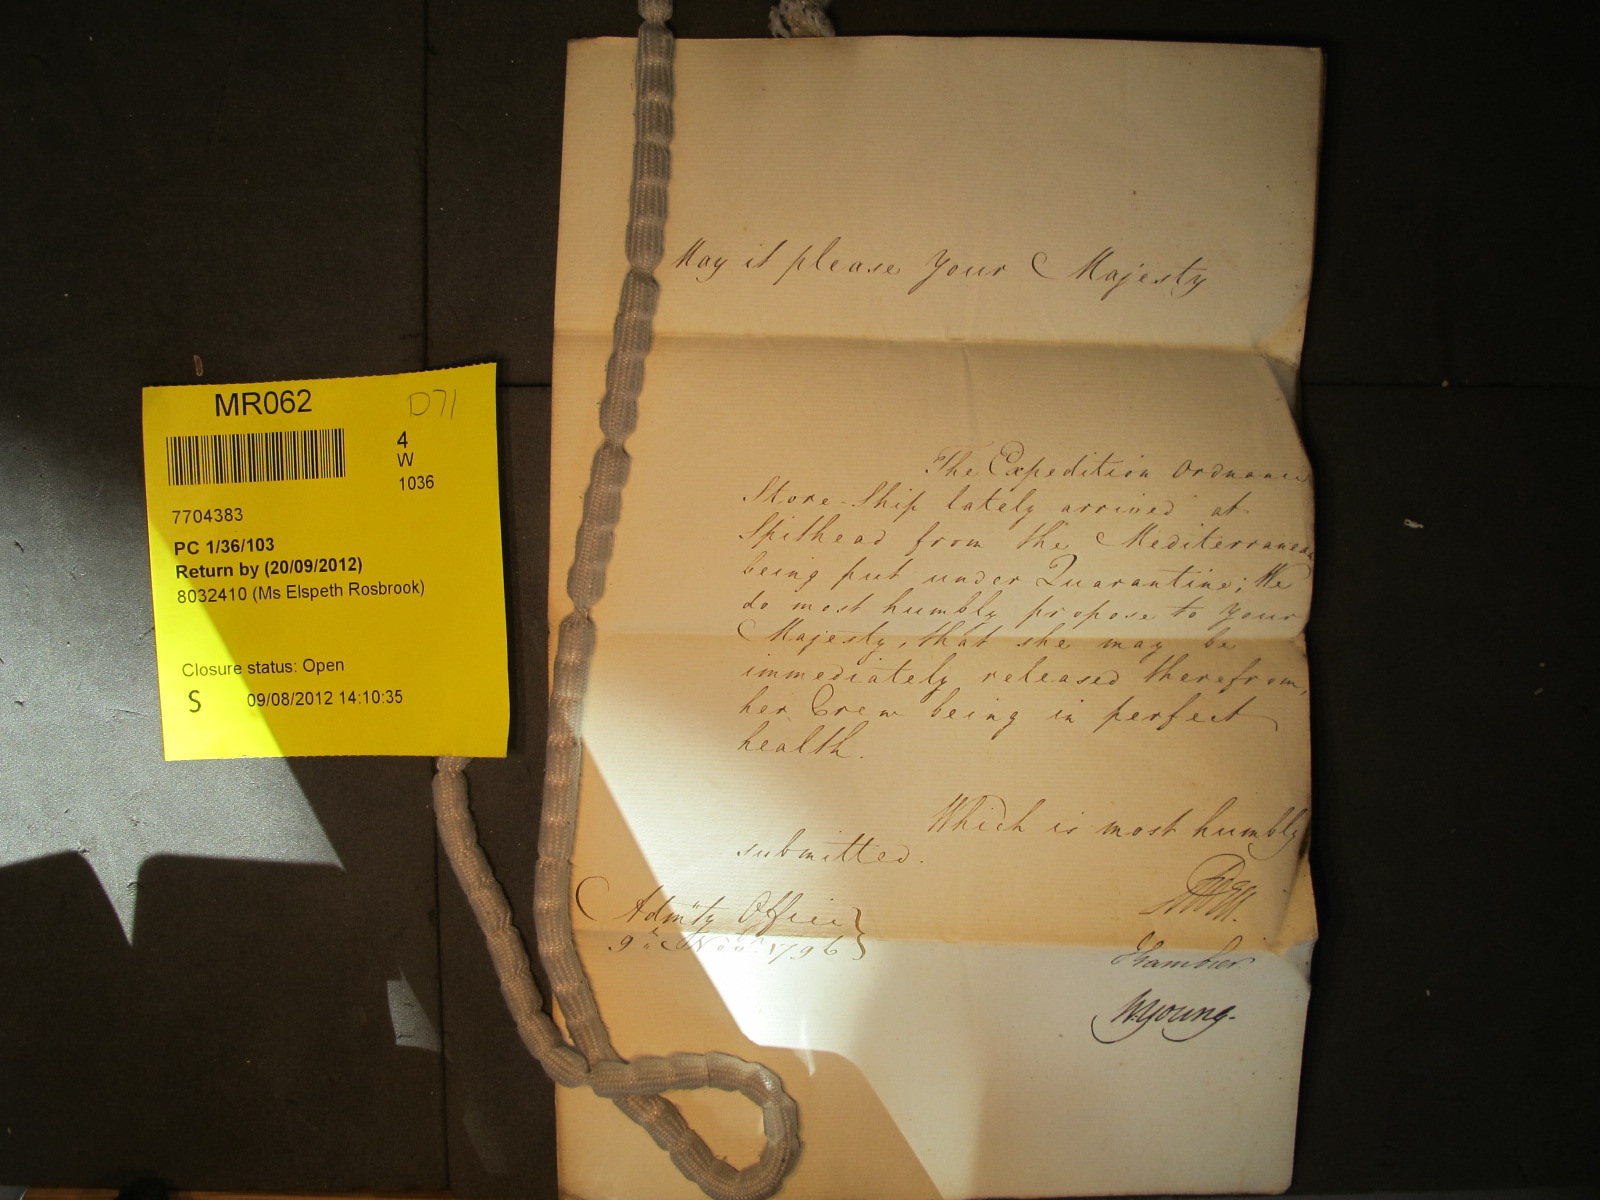 MR062
D71
4
W
1036
7704383
PC 1/36/103
Return by (20/09/2012)
8032410 (Ms Elspeth Rosbrook)
Closure status: Open
S 09/08/2012 14:10:35
May it please Your Majesty
The Expedition Ordnance
Store-Ship lately arrived at
Spithead from the Mediterranean
being put under Quarantine; We
do most humbly propose to Your
Majesty, that she may be
immediately released therefrom,
her Crew being in perfect
health.
Which is most humbly
submitted.
Adm'ty Office
9th Novr. 1796
Gambier
W Young